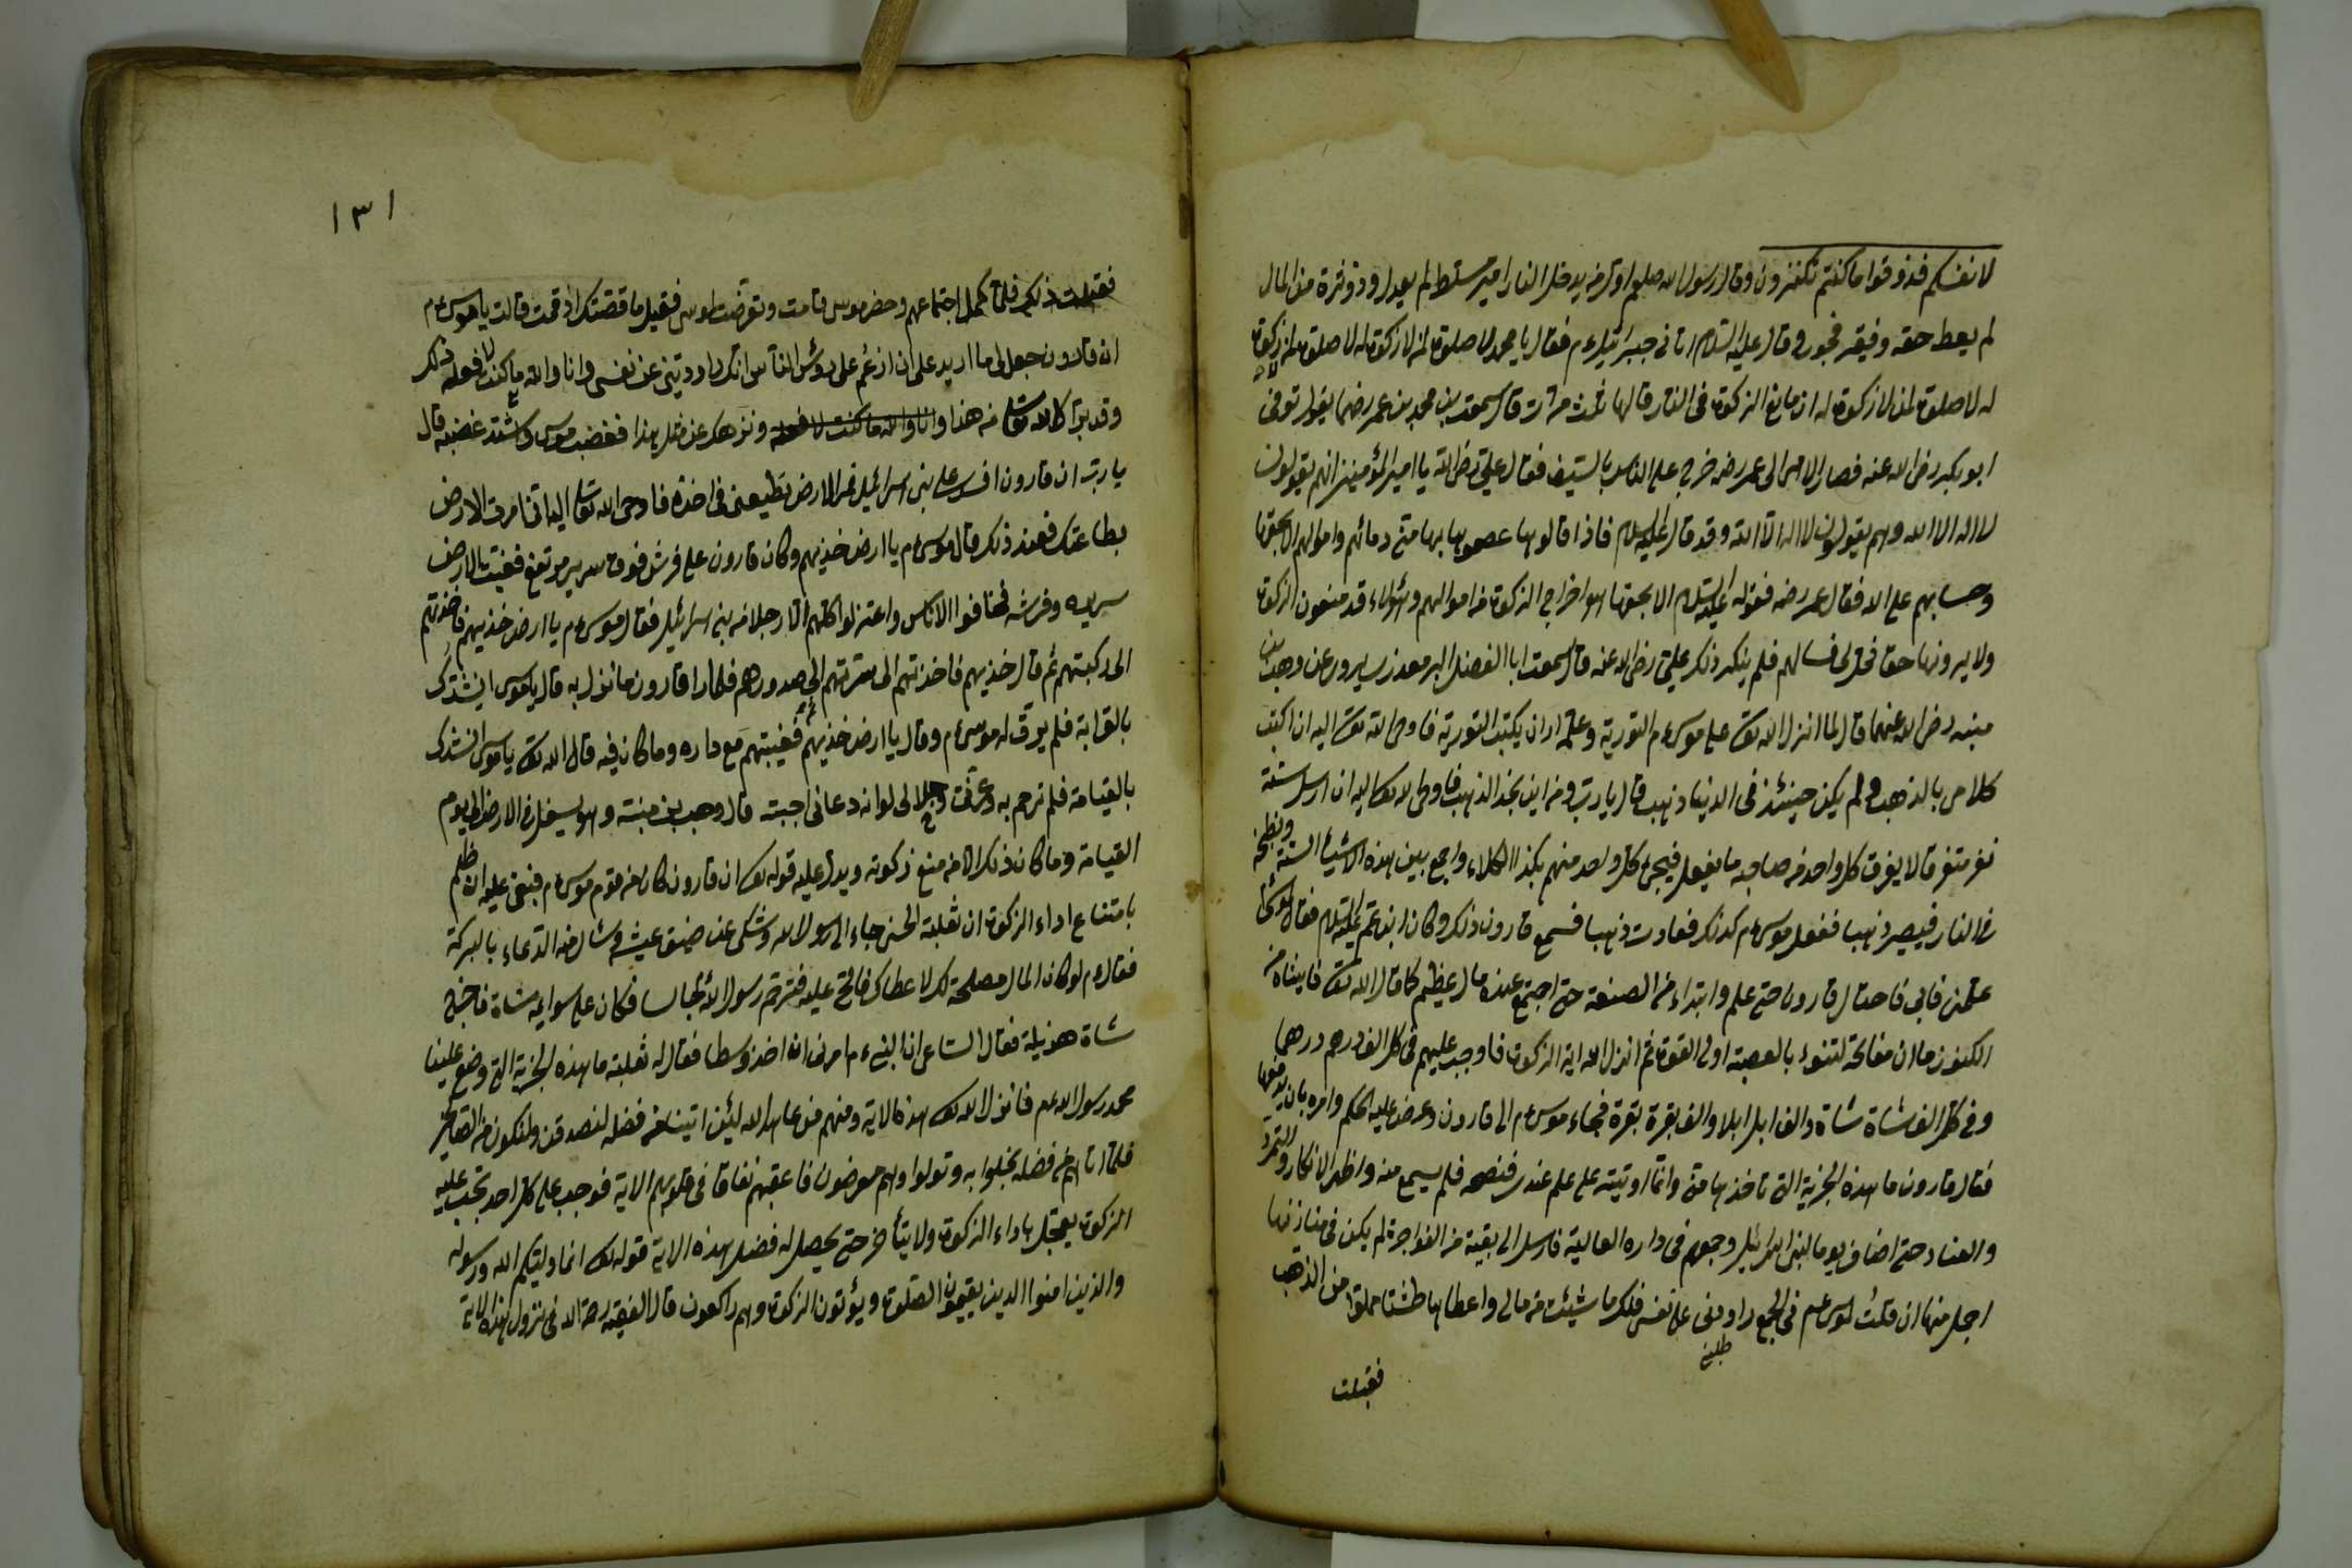 لانفسكم فذوقوا ما كنتم تكنزون وقال رسول الله صلعم اول من يدخل النار امير مسلط لم يعدل وذو ثروة من المال
لم يعط حقه وفقير فخور وقال عليه السلام اتانى جبرائيل عم فقال يا محمد لا صلوة لمن لا زكوة له لا صلوة لمن لا زكوة
له لا صلوة لمن لا زكوة له ان مانع الزكوة فى النار قالها ثلث مرات قال سمعت بن محمد بن عمر رضهما يقول توفى
ابو بكر رضى الله عنه فصار الامر الى عمر رضه خرج على الناس بالسيف فقال على رضى الله يا امير المؤمنين انهم يقولون
لا اله الا الله وهم يقولون لا اله الا الله وقد قال عليه السلام فاذا قالوها عصموا بها منى دمائهم واموالهم الا بحقها
وحسابهم على الله فقال عمر رضه فقوله عليه السلام الا بحقها هو اخراج الزكوة من اموالهم وهؤلاء قد منعون الزكوة
ولا يرونها حقا فحل لى قتالهم فلم ينكر ذلك على رضى الله عنه قال سمعت ابا الفضل البرمعذر يسيرور عن وهب بن
منبه رضى الله عنهما قال لما انزل الله تعالى على موسى عم التورية وعلمه اراد ان يكتب التورية فاوحى الله تعالى اليه ان اكتب
كلامى بالذهب ولم يكن حينئذ فى الدنيا ذهب قال يا رب ومن اين نجد الذهب فاوحى الله تعالى اليه ان ارسل ستة
نفر متفرقا لا يعرف كل واحد من صاحبه ما يفعل فيجئ كل واحد منهم بكذا الكلاء واجمع بين هذه الاشياء الستة وبطبخه
فى النار فيصير ذهبا ففعل موسى عم كذلك فعادت ذهبا فسمع قارون ذلك وكان ابن عم عليه السلام فقال لموسى
علمنى فابى فاحتال قارون حتى علم وابتداء من الصنعة حتى اجتمع عنده مال عظيم كما قال الله تعالى فاتيناه من
الكنوز ما ان مفاتحه لتنوء بالعصبة اولى القوة ثم انزل الله اية الزكوة فاوجب عليهم فى كل الف درهم درهما
وفى كل الف شاة شاة والف ابل ابلا والف بقرة بقرة فجاء موسى عم الى قارون وعرض عليه الحكم وامره بان يدفعها
فقال قارون ما هذه الجزية التى تاخذها منى وانما اوتيته على علم عندى فنصحه فلم يسمع منه واظهر الانكار والتمرد
والعناد حتى اضاف يوما لبنى اسرائيل وجمعهم فى داره العالية فارسل الى بقية من الفواجرة لم يكن فى منازنها
اجمل منها ان قلت لموسى عم فى الجمع راودنى عن نفسى فلك ما شيئت من مالى واعطاها طشتا مملوا من الذهب
طلبنى
فقبلت
١٣١
فقبلت ذلك فلما كمل اجتماعهم وحضر موسى قامت وتعرضت لموسى فقيل ما قصتك اذ قمت قالت يا موسى عم
ان قارون جعل لى ما اريد على ان ازعم على رؤس الناس انك راودتنى عن نفسى وانا والله ما كنت لافعله ذلك
وقد برّاك الله تعالى من هذا وانا والله ما كنت لافعله ونزهك عن مثل هذا فغضب موسى واشتد غضبه قال
يا رب ان قارون افسد على بنى اسرائيل فمر الارض تطيعنى فى اخذه فاوحى الله تعالى اليه انا امرت الارض
بطاعتك فعند ذلك قال موسى عم يا ارض خذيهم وكان قارون على فرش فوق سرير مرتفع فغيبت الارض
سريره وفرشه فخافوا الاناس واعتزلوا كلهم الا رجلا من بنى اسرائيل فقال موسى عم يا ارض خذيهم فاخذتهم
الى ركبتهم ثم قال خذيهم فاخذتهم الى سرتهم الى صدورهم فلما را قارون ما نزل به قال يا موسى انشدك
بالقرابة فلم يرق له موسى عم وقال يا ارض خذيهم فغيبتهم مع داره وما كان فيه قال الله تعالى يا موسى انشدك
بالقيامة فلم ترحم به وعزتى وجلالى لو انه دعانى اجبت قال وهب بن منبه وهو يسفل فى الارض الى يوم
القيامة وما كان ذلك الا من منع زكوته ويدل عليه قوله تعالى ان قارون كان من قوم موسى عم فبغى عليهم اى ظلم
بامتناع اداء الزكوة ان ثعلبة الحسن جاء الى رسول الله وشكى عن ضيق عيشه وسأل منه الدعاء بالبركة
فقال عم لو كان المال مصلحة لك لاعطاك فالح عليه فترحم رسول الله فكان على سوايمه شاة فاخرج
شاة هزيلة فقال الساعى ان النبى عم امرنى انا اخذ وسطا فقال له ثعلبة ما هذه الجزية التى وضع علينا
محمد رسول الله عم فانزل الله تعالى هذه الاية ومنهم من عاهد الله لئن اتينا من فضله لنصدقن ولنكون من الصالحين
فلما اتاهم من فضله بخلوا به وتولوا وهم معرضون فاعقبهم نفاقا فى قلوبهم الاية فوجب على كل احد تجب عليه
الزكوة يعجل باداء الزكوة ولا يتأخر حتى يحصل له فضل هذه الاية قوله تعالى انما وليكم الله ورسوله
والذين امنوا الذين يقيمون الصلوة ويؤتون الزكوة وهم راكعون قال الفقيه رحمه الله فى نزول هذه الاية